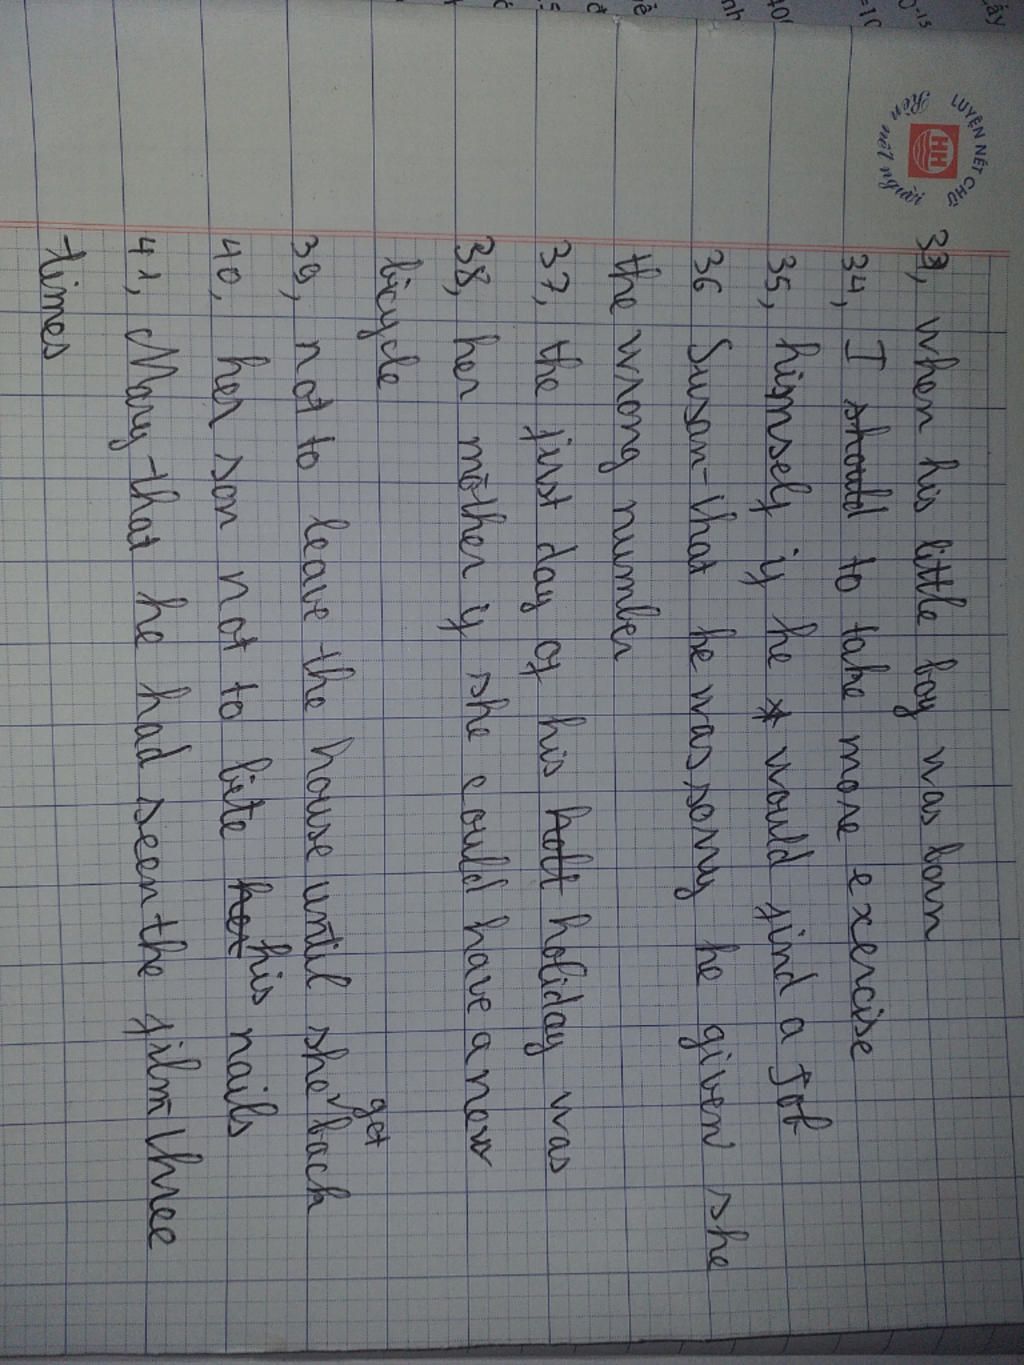 LUYỆN NÉT CHỮ
Rèn nết người
HH
33, when his little boy was born
34, I should to take more exercise
35, himself if he would find a Job
36 Susan that he was sorry he given she
the wrong number
37, the first day of his hott holiday was
38, her mother if she could have a new
bicycle
39, not to leave the house until she get back
40, her son not to bite hot his nails
41, Mary that he had seen the film three
times